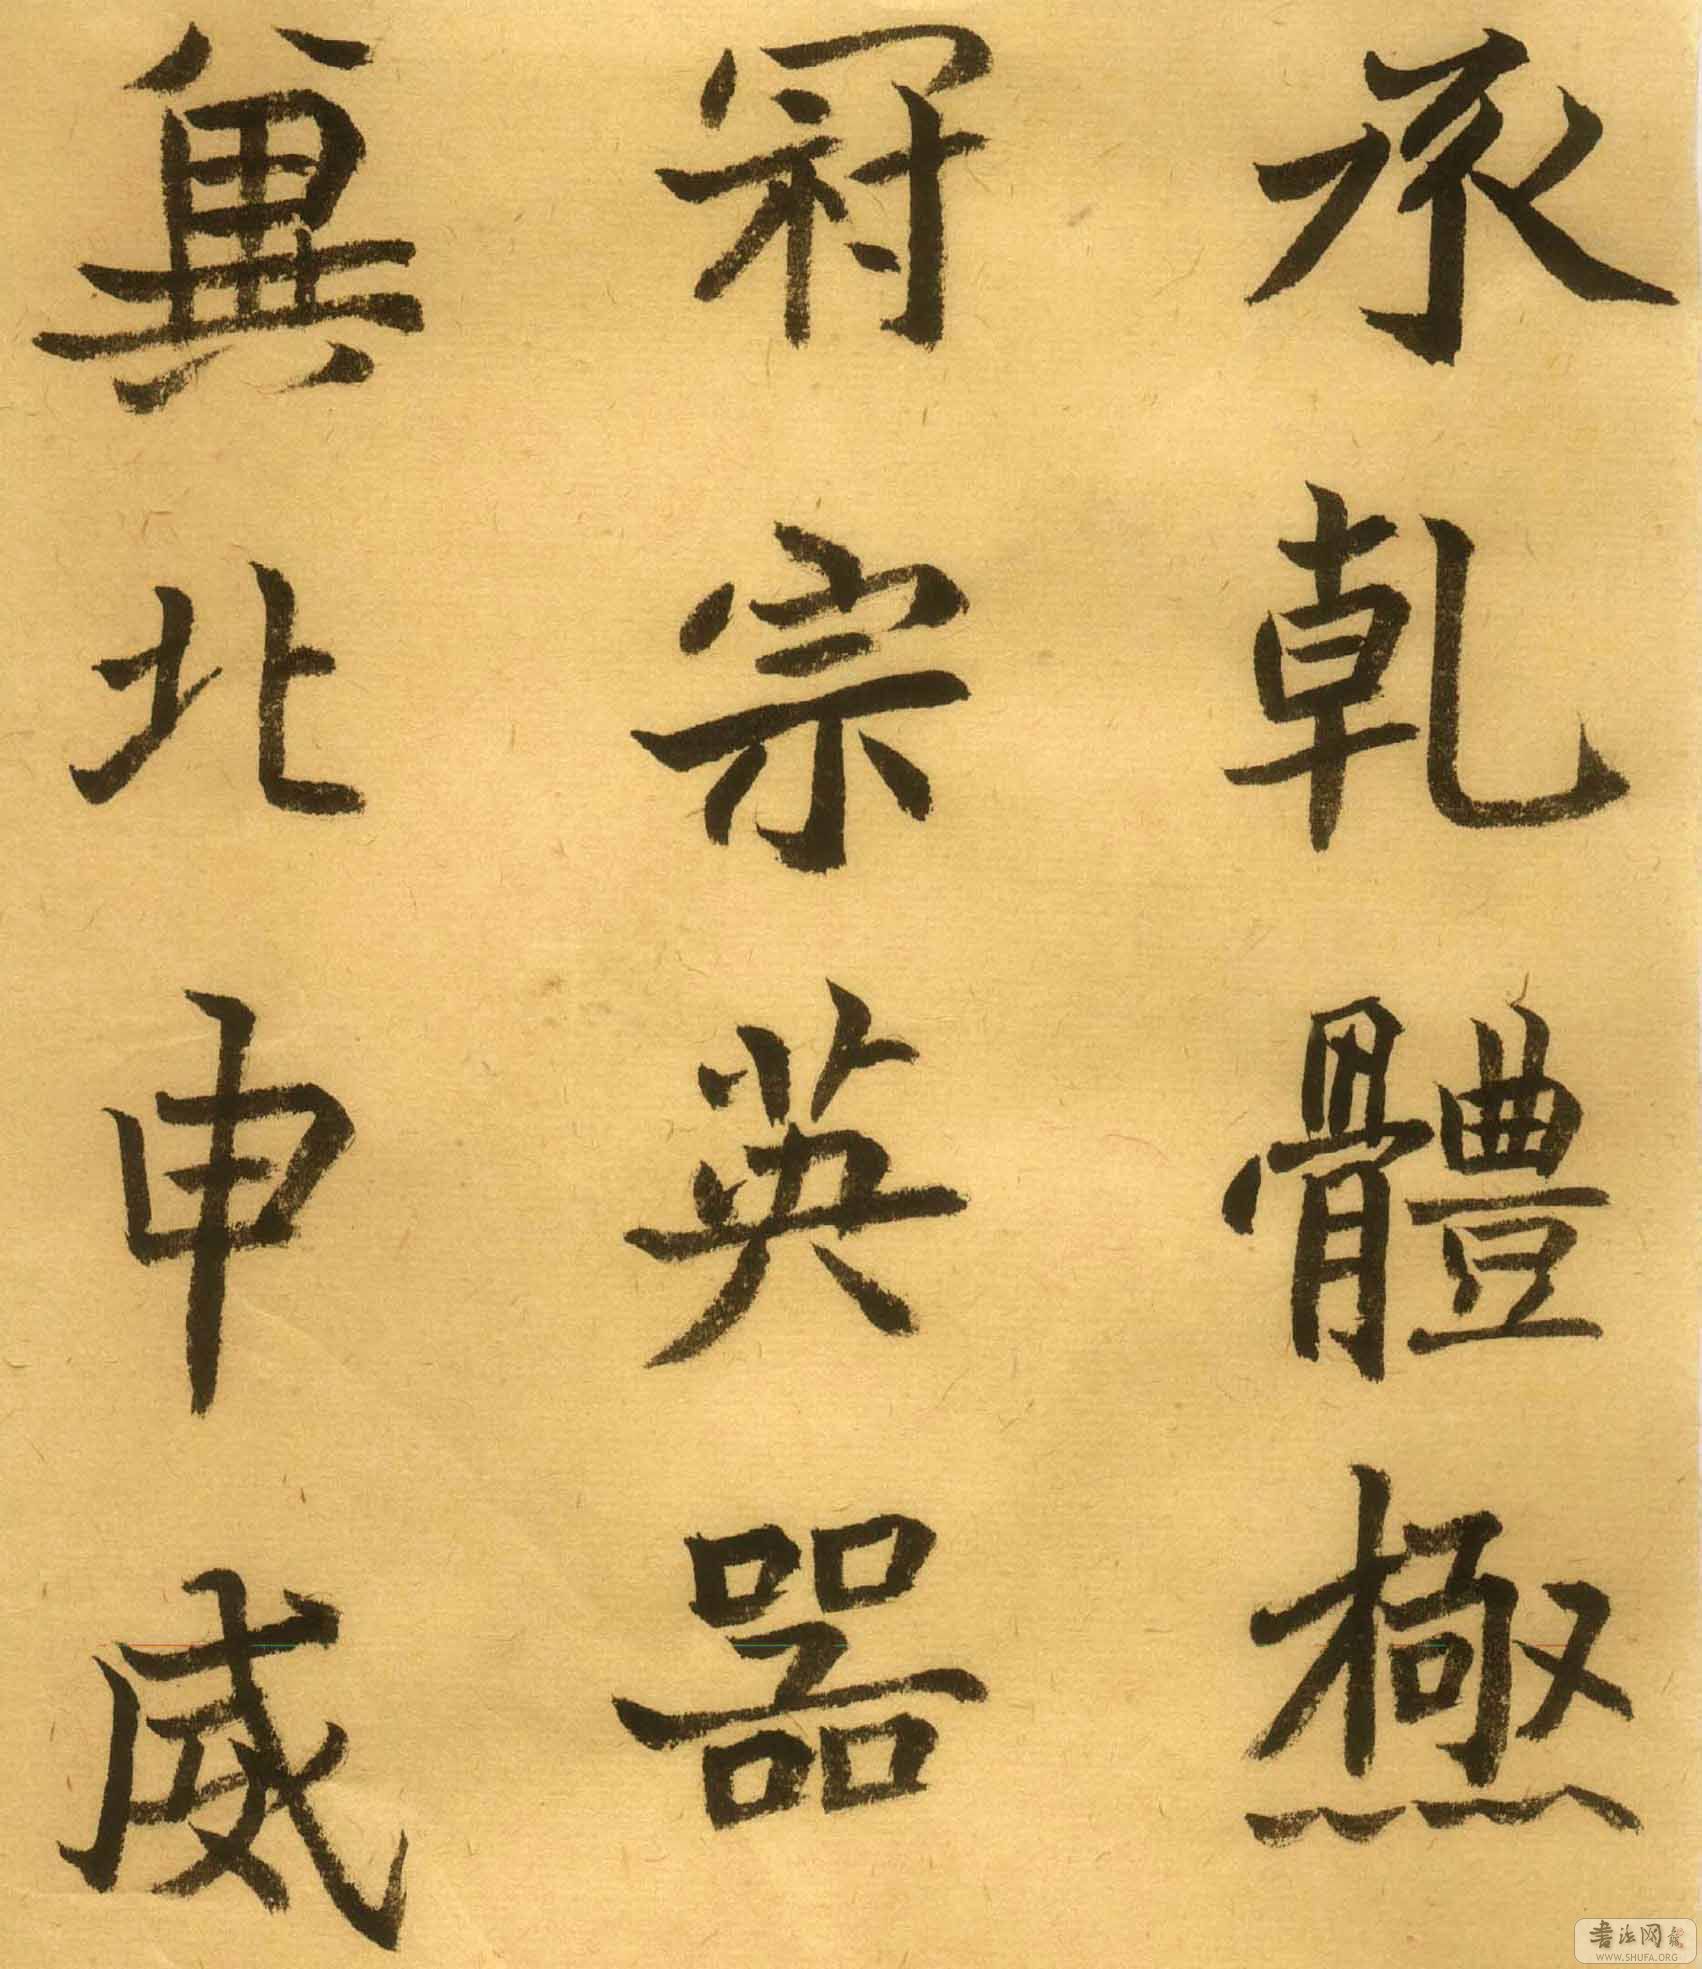 承乾體極
冠宗英器
冀北申威
書法网
WWW.SHUFA.ORG